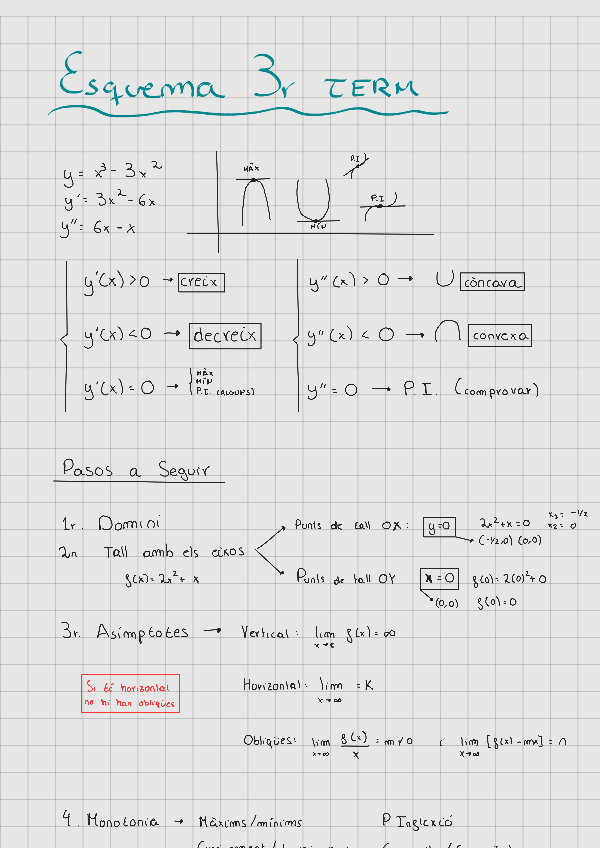 Esquema 3r TERM
y = x³ - 3x²
y' = 3x² - 6x
y'' = 6x - x
MÀX
MÍN
P.I
P.I
y'(x) > 0 → creix
y'(x) < 0 → decreix
y'(x) = 0 → { MÀX MÍN P.I. (ALGUNS)
y''(x) > 0 → ∪ còncava
y''(x) < 0 → ∩ convexa
y'' = 0 → P.I. (comprovar)
Pasos a Seguir
1r. Domini
2n Tall amb els eixos
f(x) = 2x² + x
Punts de tall OX: y=0 2x²+x=0 x₁ = -1/2 x₂ = 0
(-1/2,0) (0,0)
Punts de tall OY x=0 f(0) = 2(0)²+0
(0,0) f(0) = 0
3r. Asímptotes → Vertical: lim f(x) = ∞
Si té horizontal
no hi han obliqües
Horizontal: lim = K
x→∞
Obliqües: lim f(x)/x = m ≠ 0 i lim [f(x) - mx] = n
x→∞ x→∞
4. Monotonia → Màxims/mínims P Inflexió